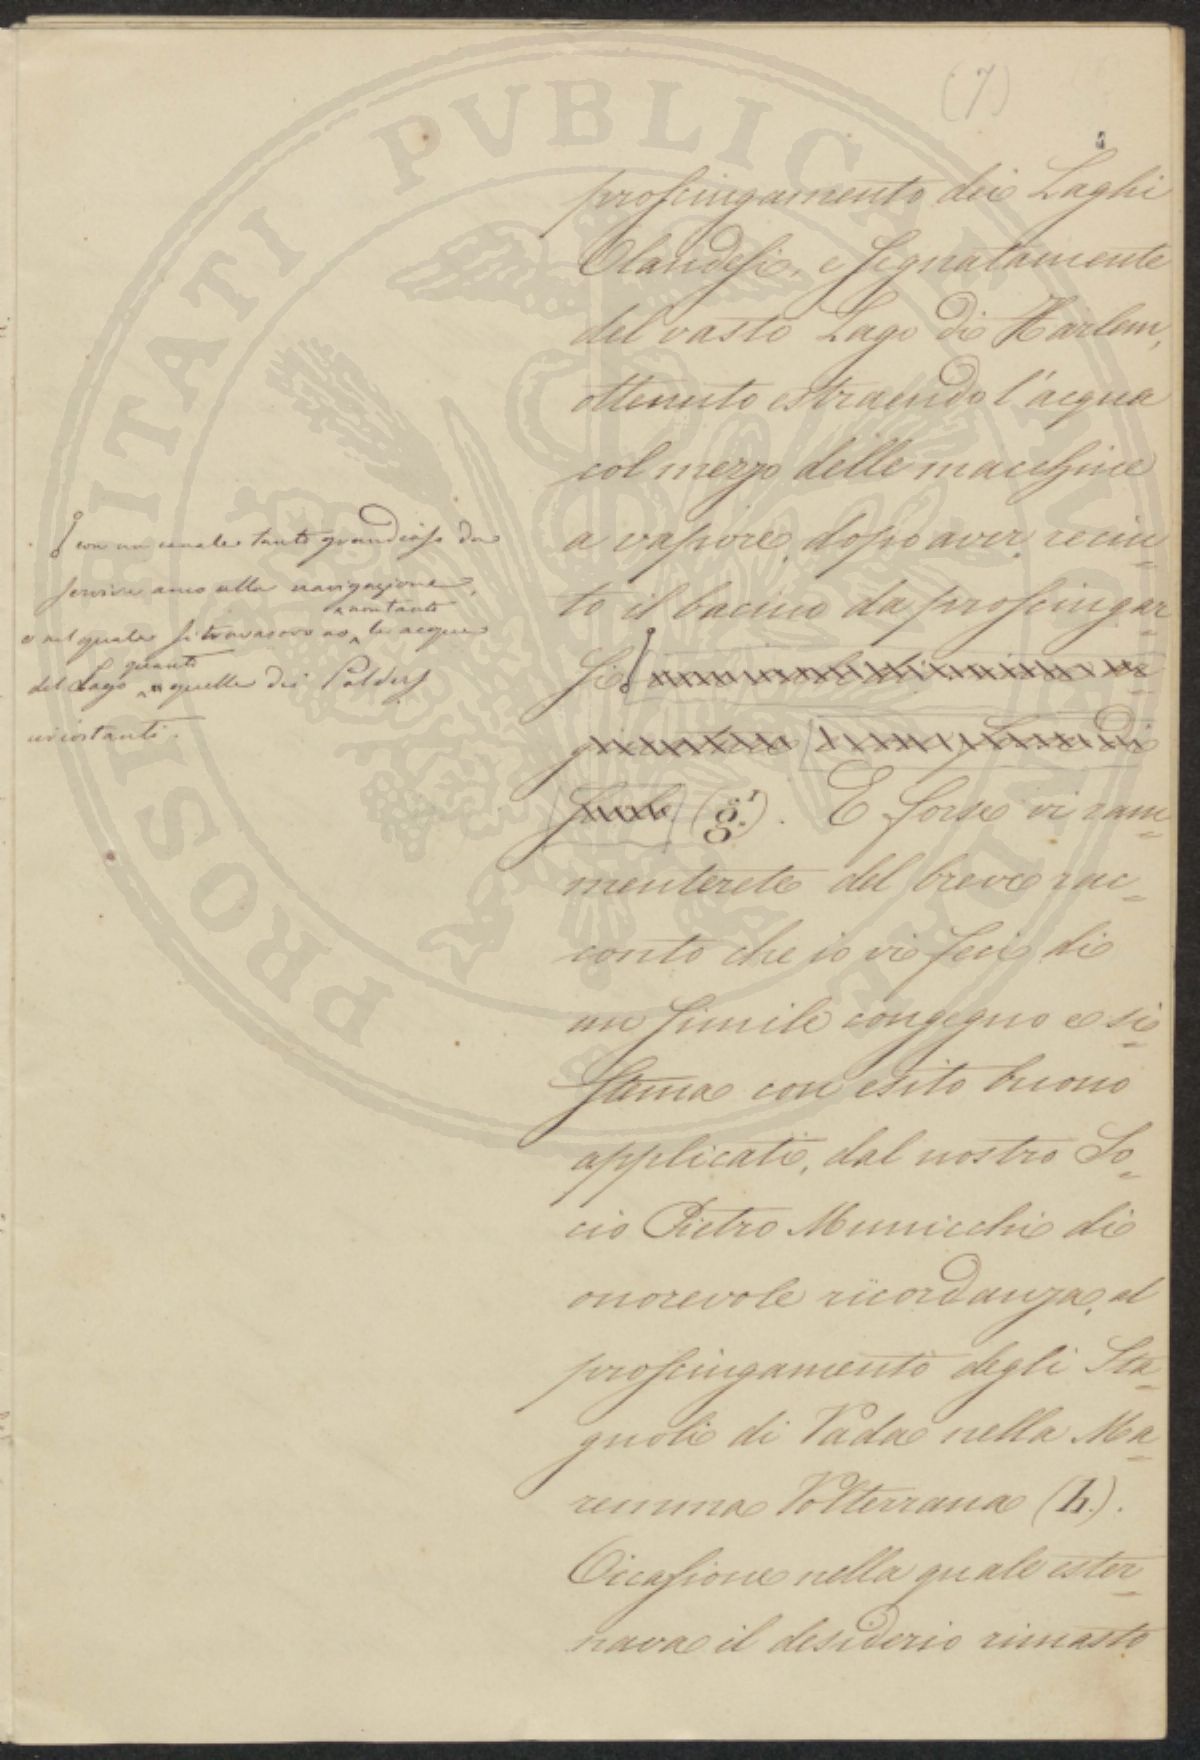 (7)
prosciugamento dei Laghi
Olandesi, e segnatamente
del vasto Lago di Harlem,
ottenuto estraendo l'acqua
col mezzo delle macchine
a vapore, dopo aver recin=
to il bacino da prosciugar=
si
(g.¹). E forse vi ram=
menterete del breve rac=
conto che io vi feci di
un simile congegno e si=
stema con esito buono
applicati, dal nostro So=
cio Pietro Municchi di
onorevole ricordanza, al
prosciugamento degli Sta=
gnoli di Vada nella Ma=
remma Volterrana (h.).
Occasione nella quale ester=
nava il desiderio rimasto
con un canale tanto grandioso da
servire anco alla navigazione,
e nel quale si travasarono le acque
non tanto
del Lago quelle dei Polders
quanto
circostanti.
PROSPERITATI PVBLICAE